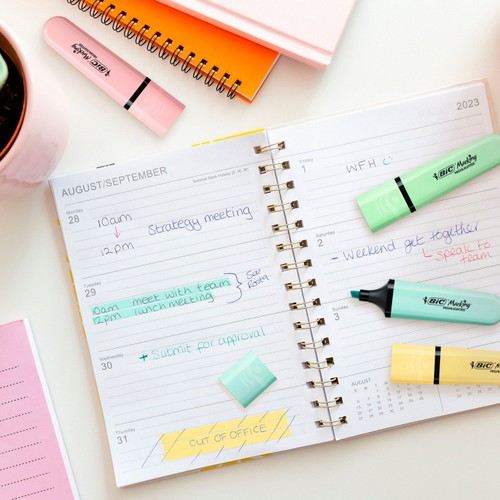 AUGUST/SEPTEMBER
Monday
28
10am
↓
12pm
Strategy meeting
Tuesday
29
10am meet with team
12pm lunch meeting
Wednesday
30
+ Submit for approval
Thursday
31
OUT OF OFFICE
2023
Friday
1
WFH
Saturday
2
- Weekend get together
speak to team
Sunday
3
AUGUST
BIC Marking
HIGHLIGHTER
BIC Marking
HIGHLIGHTER
BIC Marking
HIGHLIGHTER
BIC Marking
HIGHLIGHTER